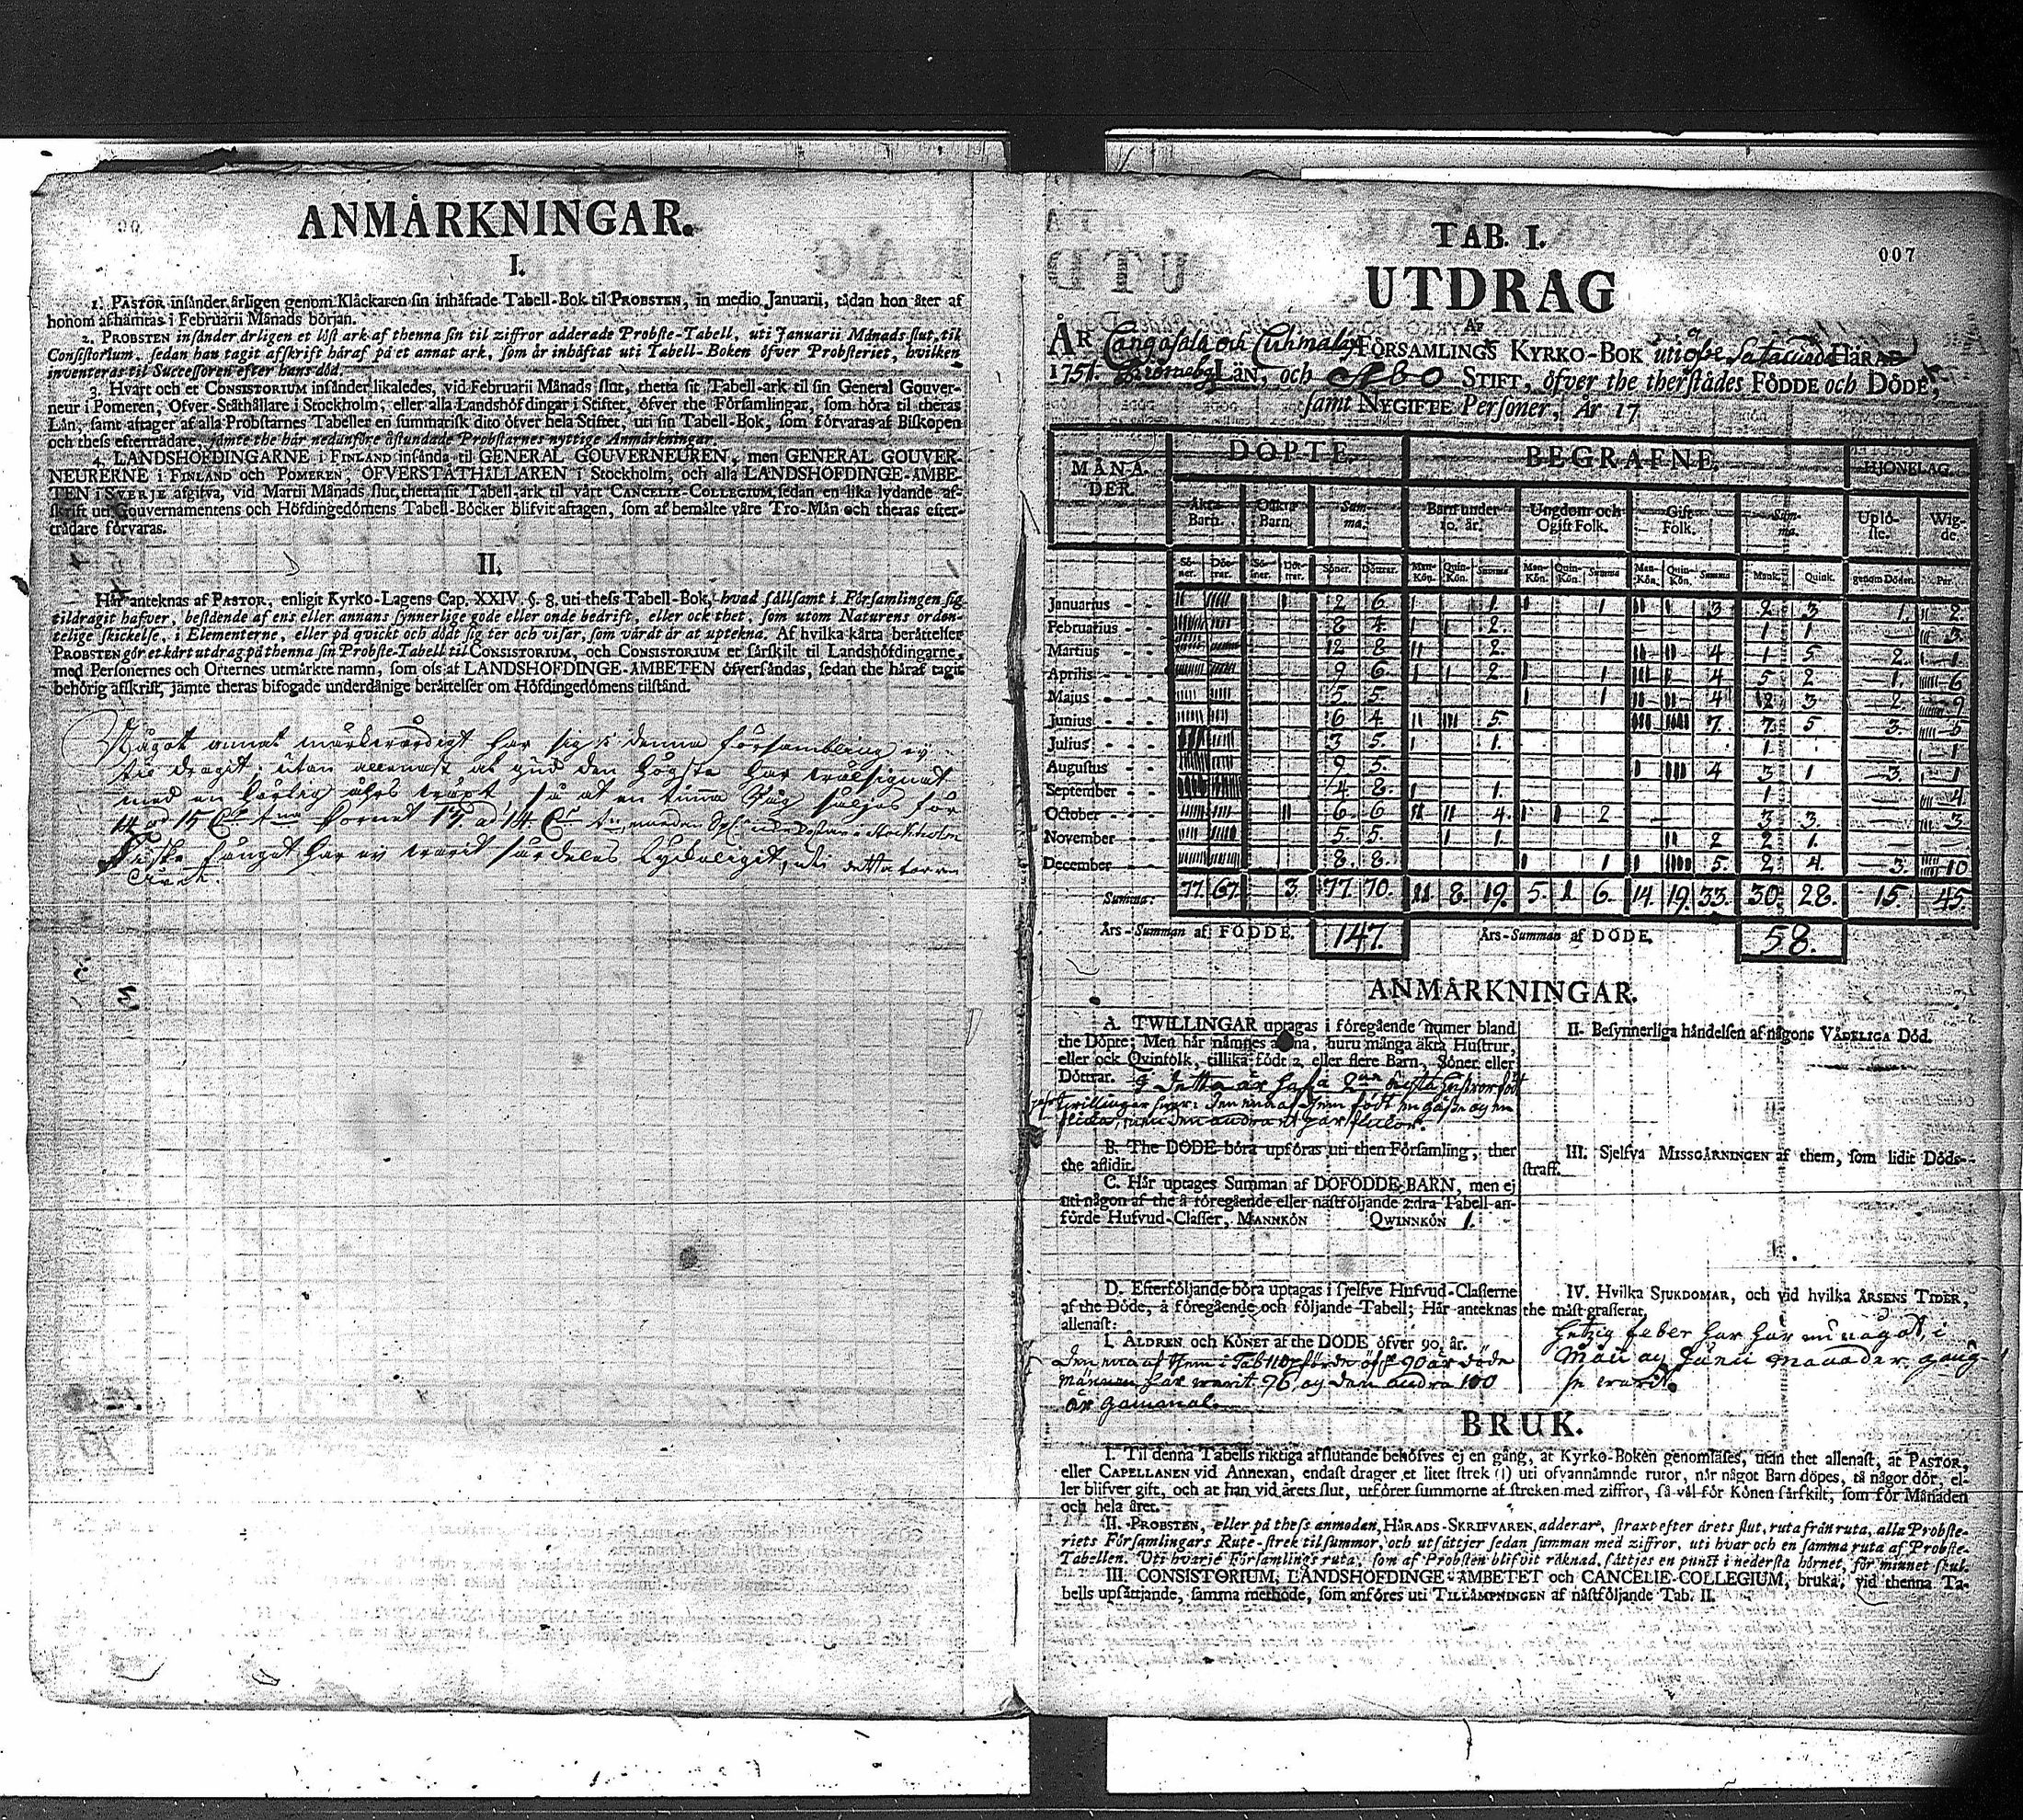 ANMÄRKNINGAR.
I.
1. PASTOR insänder årligen genom Klåckaren sin inhäftade Tabell-Bok til PROBSTEN, in medio Januarii, tådan hon åter af
honom afhämtas i Februarii Månads början.
2. PROBSTEN insänder årligen et löst ark af thenna sin til ziffror adderade Probste-Tabell, uti Januarii Månads slut, til
Consistorium, sedan han tagit afskrift häraf på et annat ark, som är inhäftat uti Tabell-Boken öfver Probsteriet, hvilken
inventeras til Successoren efter hans död.
3. Hvart och et CONSISTORIUM insänder likaledes, vid Februarii Månads slut, thetta sit Tabell-ark til sin General Gouver-
neur i Pomeren, Öfver-Ståthållare i Stockholm, eller alla Landshöfdingar i Stiftet, öfver the Församlingar, som höra til theras
Län, samt aftager af alla Probstarnes Tabeller en summarisk dito öfver hela Stiftet, uti sin Tabell-Bok, som förvaras af Biskopen
och thess efterträdare, jämte the här nedanföre åstundade Probstarnes nyttige Anmärkningar.
4. LANDSHÖFDINGARNE i FINLAND insända til GENERAL GOUVERNEUREN, men GENERAL GOUVER-
NEURERNE i FINLAND och POMEREN, ÖFVERSTÅTHÅLLAREN i Stockholm, och alla LANDSHÖFDINGE-ÄMBE-
TEN i SVERJE afgifva, vid Martii Månads slut, thetta sit Tabell-ark til vårt CANCELIE-COLLEGIUM, sedan en lika lydande af-
skrift uti Gouvernamentens och Höfdingedömens Tabell-Böcker blifvit aftagen, som af bemälte våre Tro-Män och theras efter-
trädare förvaras.
II.
Här anteknas af PASTOR, enligit Kyrko-Lagens Cap. XXIV. §. 8. uti thess Tabell-Bok, hvad sällsamt i Församlingen sig
tildragit hafver, bestående af ens eller annans synnerlige gode eller onde bedrift, eller ock thet, som utom Naturens orden-
telige skickelse, i Elementerne, eller på qvickt och dödt sig ter och visar, som värdt är at uptekna. Af hvilka kårta berättelser
PROBSTEN gör et kårt utdrag på thenna sin Probste-Tabell til CONSISTORIUM, och CONSISTORIUM et särskilt til Landshöfdingarne,
med Personernes och Orternes utmärkte namn, som oss af LANDSHÖFDINGE-ÄMBETEN öfversändas, sedan the häraf tagit
behörig afskrift, jämte theras bifogade underdånige berättelser om Höfdingedömens tilstånd.
Något annat märkvärdigt har sig i denna försambling ej
til dragit, utan allenast at gud den högste har wälsignat
med en härlig åhrs wäxt, så at en tunna Råg säljes för
14 ad 15
fiske fånget har ej warit särdeles lyckeligit, uti detta
007
TAB. I.
UTDRAG
AF
ÅR Cangasala och Cuhmalax FÖRSAMLINGS KYRKO-BOK uti öfre Satacunda HÄRAD
1751. Biörneborgs LÄN, och Åbo STIFT, öfver the therstädes FÖDDE och DÖDE,
samt NYGIFTE Personer, År 17
MÅNA-
DER. DÖPTE. BEGRAFNE. HJONELAG.
Äkta Barn. Oäkta Barn. Sum-ma. Barn under 10. år. Ungdom och Ogift Folk. Gift Folk. Sum-ma. Uplö-ste. Wig-de.
Sö-ner. Döt-trar. Sö-ner. Döt-trar. Söner. Döttrar. Man-Kön. Quin-Kön. Summa Man-Kön. Quin-Kön. Summa Man-Kön. Quin-Kön. Summa Mank. Quink. genom Döden. Par.
Januarius - - 2 6 1. 1 3 2 3 1. 2.
Februarius - - 8 4 2. 1 1 3.
Martius - - 12 8 2. 4 1 5 2. 1.
Aprilis - - 9 6 2 1 4 5 2 1. 6
Majus - - 5 5 1 4 2 3 2. 9
Junius - - 6 4 5. 7 7 5 3. 5
Julius - - 3 5. 1. 1 1
Augustus - - 9 5 4 3 1 3. 1
September - - 4 8. 1. 1 4
October - - 6 6 4. 2 3 3 3.
November - - 5 5. 1. 2 2 1.
December - - 8. 8. 1 5. 2 4. 3. 10
Summa: 77. 67 3. 77. 70. 11 8. 19. 5. 1. 6. 14. 19. 33. 30. 28. 15 45.
Års-Summan af FÖDDE. 147. Års-Summan af DÖDE. 58.
ANMÄRKNINGAR.
A. TWILLINGAR uptagas i föregående numer bland
the Döpte; Men här nämnes allena, huru många äkta Hustrur,
eller ock Qvinfolk, tillika födt 2. eller flere Barn, Söner eller
Döttrar. I detta år hafa 2ne gifta hustrur födt
twillingar den ena födt en gåsse och en
flicka, men den andra et par flickor.
B. The DÖDE böra upföras uti then Församling, ther
the aflidit.
C. Här uptages Summan af DÖFÖDDE BARN, men ej
uti någon af the å föregående eller nästföljande 2:dra Tabell an-
förde Hufvud-Classer, MANNKÖN QWINNKÖN 1.
D. Efterföljande böra uptagas i sjelfve Hufvud-Classerne
af the Döde, å föregående och följande Tabell; Här anteknas
allenast:
I. ÅLDREN och KÖNET af the DÖDE öfver 90. år.
Den ena af them i Tab. II upförde öf. 90 år döde
männer har warit 96, og den andra 100
år gammal.
II. Besynnerliga händelsen af någons VÅDELIGA DÖD.
III. Sjelfva MISSGÄRNINGEN af them, som lidit Döds-
straff.
IV. Hvilka SJUKDOMAR, och vid hvilka ÅRSENS TIDER,
the mäst grasserar,
Hetzig feber har här något i
Maii og Junii månader gång-
se warit.
BRUK.
I. Til denna Tabells riktiga afslutande behöfves ej en gång, at Kyrko-Boken genomläses, utan thet allenast, at PASTOR,
eller CAPELLANEN vid Annexan, endast drager et litet strek (|) uti ofvannämnde rutor, när något Barn döpes, tå någor dör, el-
ler blifver gift, och at han vid årets slut, utförer summorne af streken med ziffror, så väl för Könen särskilt, som för Månaden
och hela året.
II. PROBSTEN, eller på thess anmodan, HÄRADS-SKRIFVAREN, adderar, straxt efter årets slut, ruta från ruta, alla Probste-
riets Församlingars Rute-strek til summor, och utsättjer sedan summan med ziffror, uti hvar och en samma ruta af Probste-
Tabellen. Uti hvarje Församlings ruta, som af Probsten blifvit räknad, sättjes en punct i nedersta hörnet, för minnet skul.
III. CONSISTORIUM, LANDSHÖFDINGE-ÄMBETET och CANCELIE-COLLEGIUM, bruka, vid thenna Ta-
bells upsättjande, samma methode, som anföres uti TILLÄMPNINGEN af nästföljande Tab. II.